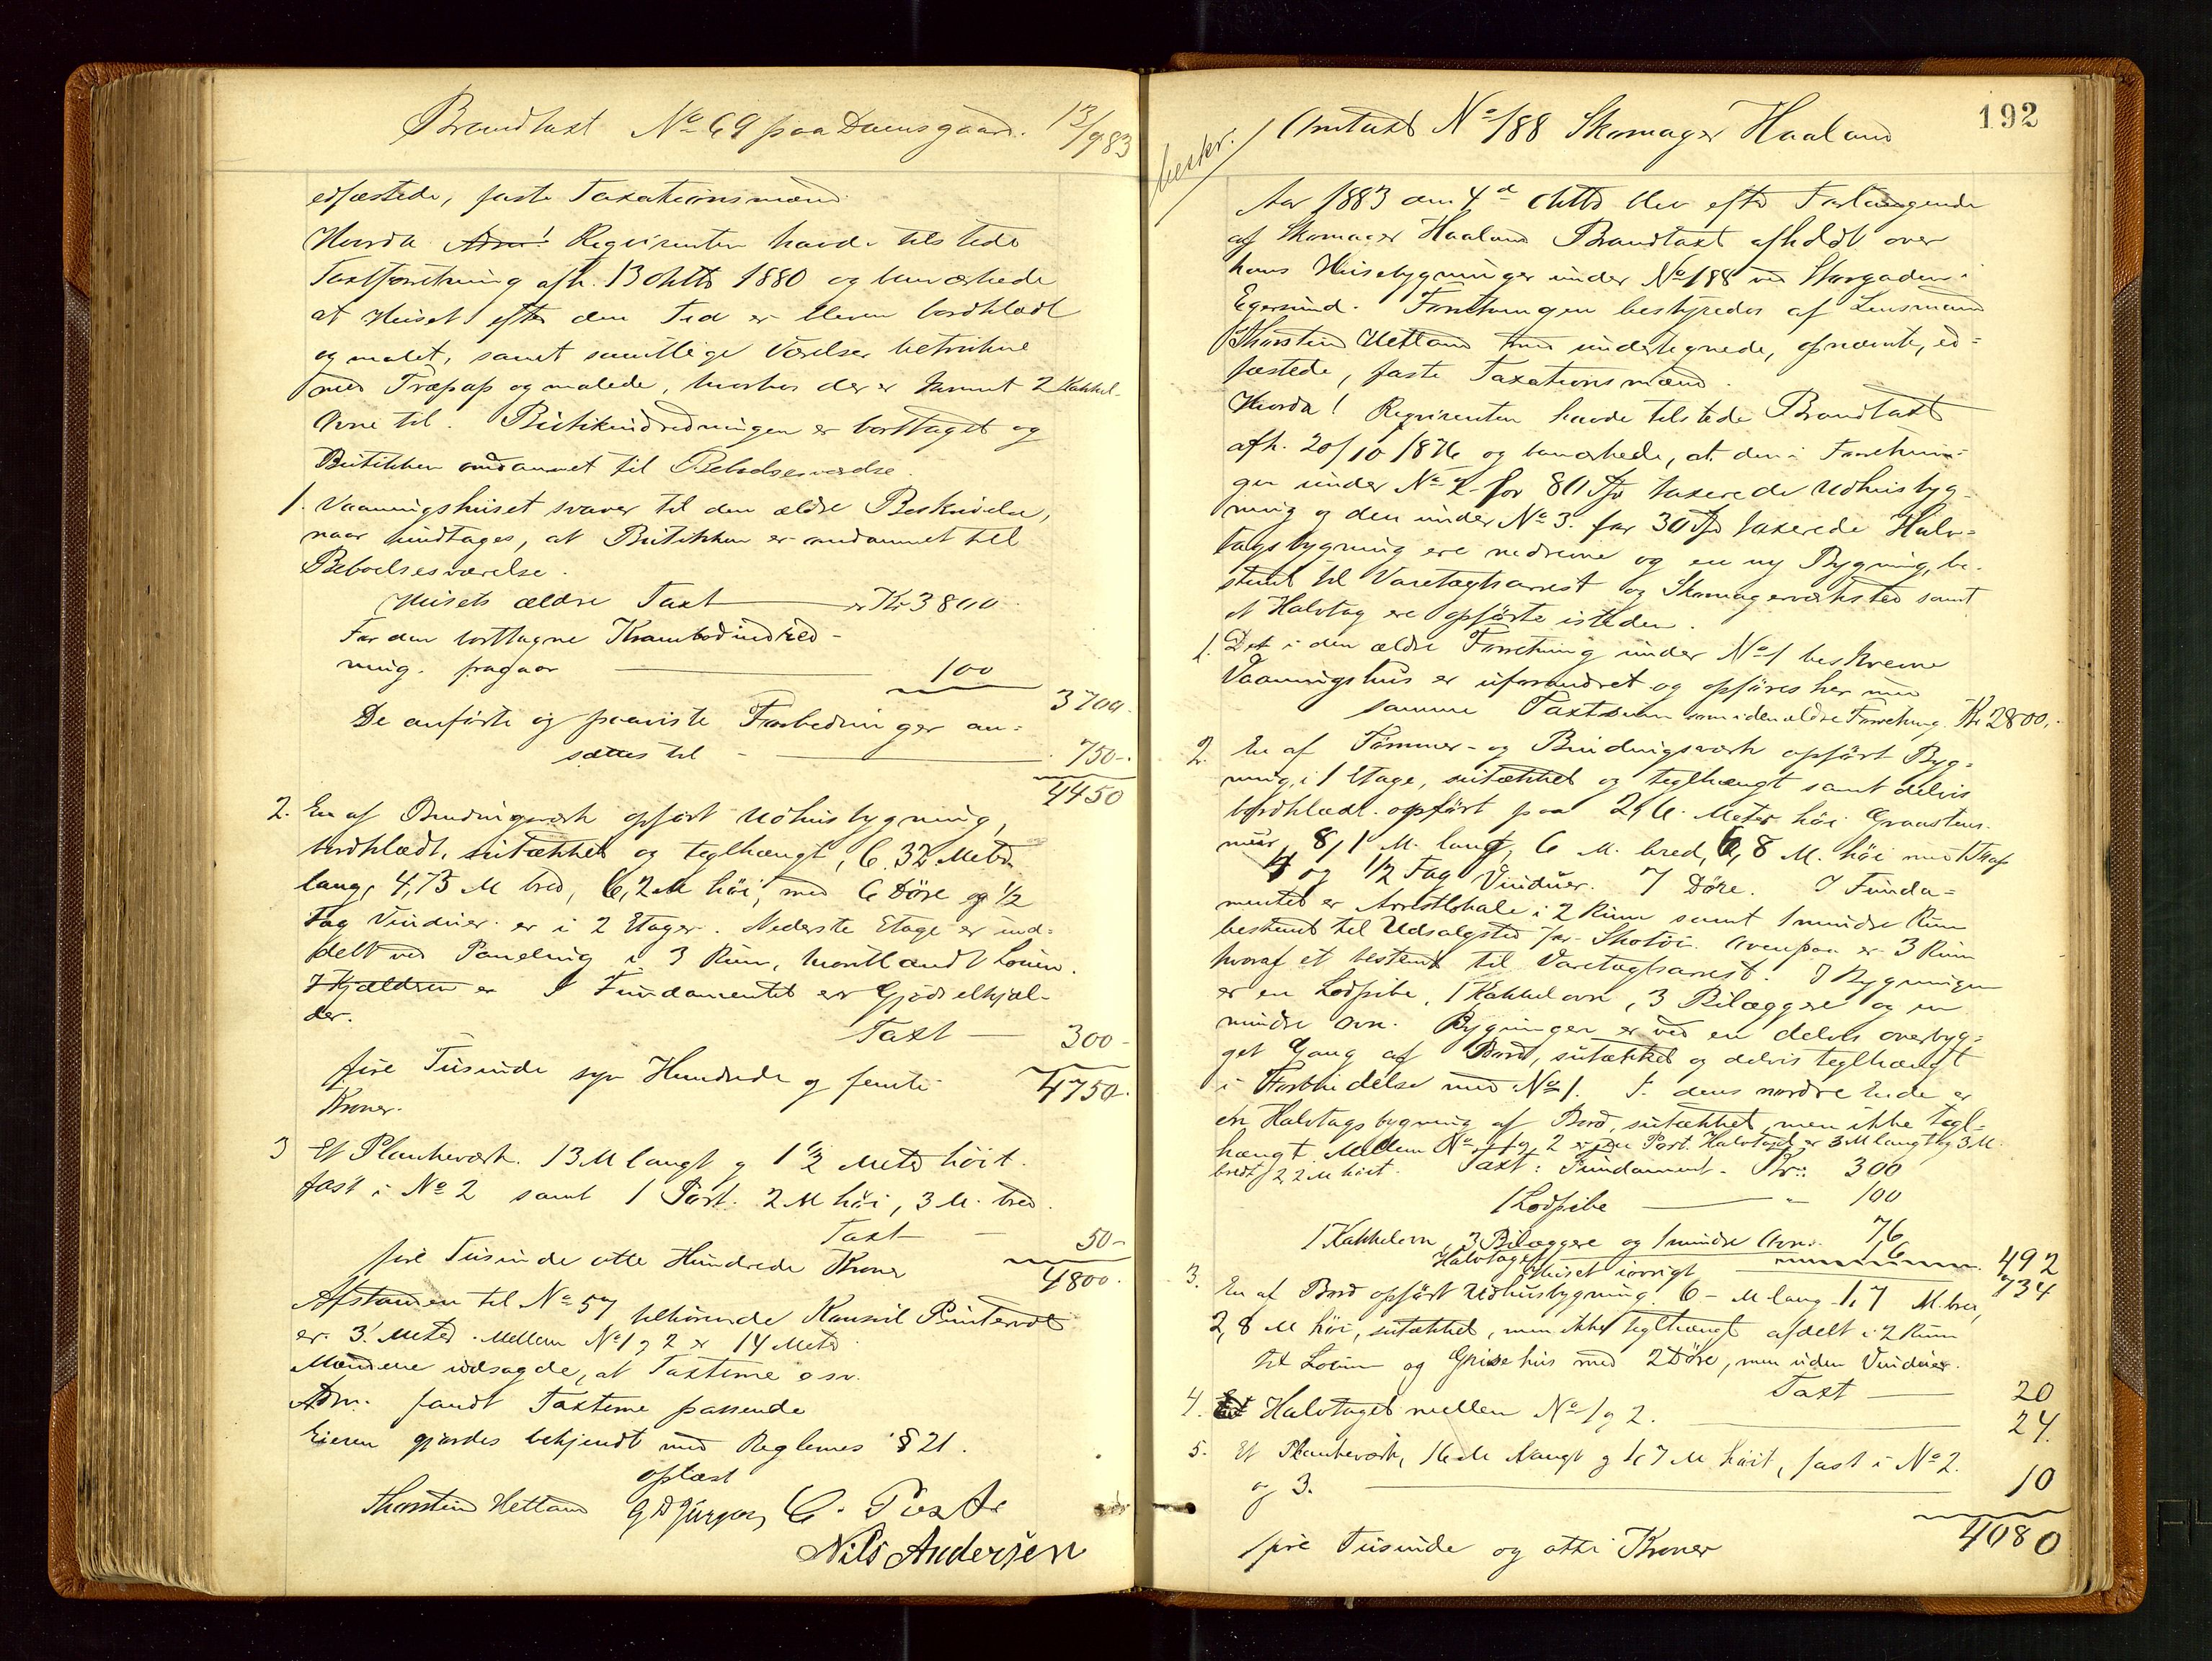 Brandtaxt No 69 paa Damsgaard. 13/9 83
edfæstede, faste Taxationsmænd.
Hvorda Adm! Reqvirenten havde tilstede
Taxtforretning afh. 13 Oktb 1880 og bemærkede
at Huset efter den Tid er bleven bordklædt
og malet, samt samtlige Værelser betrukne
med Træpap og malede, hvorhos der er kommet 2 Kakkel-
ovne til. Butikindredningen er borttaget og
Butikken omdannet til Beboelsesværelse.
1. Vaaningshuset svarer til den ældre Beskrivelse,
naar undtages, at Butikken er omdannet til
Beboelsesværelse.
Husets ældre Taxt er Kr 3800
For den borttagne Krambodindred-
ning fragaar 100
3700.
De anførte og paaviste Forbedringer an-
sættes til 750.
4450
2. En af Bindingsværk opført Udhusbygning,
bordklædt, sutækket og teglhængt, 6,32 Meter
lang, 4,75 M bred, 6,2 M høi, med 6 Døre og 1/2
Fag Vinduer er i 2 Etager. Nederste Etage er ind-
delt ved Paneling i 3 Rum, hvoriblandt Locum.
I Kjælderen er I Fundamentet er Gjødselkjæl-
der.
Taxt 300
fire Tusinde syv Hundrede og femti 4750.
Kroner.
3 Et Plankeværk 13 M langt og 1 1/2 Meter høit
fast i No 2 samt 1 Port 2 M høi, 3 M. bred.
Taxt 50
fire Tusinde otte Hundrede Kroner 4800.
Afstanden til No 57 tilhørende Konsul Puntervold
er 3 Meter. Mellem No 1 og 2 er 14 Meter
Mændene udsagde, at Taxterne osv.
Adm. fandt Taxterne passende
Eieren gjordes bekjendt med Reglernes § 21.
oplæst
Thorstein Hetland G D Jürgens C. Piest
Nils Andersen
192
beskr.
Omtaxt No 188 Skomager Haaland
Aar 1883 den 4de Oktb blev efter Forlangende
af Skomager Haaland Brandtaxt afholdt over
hans Husebygninger under No 188 ved Storgaden i
Egersund. Forretningen bestyredes af Lensmand
Thorstein Hetland med undertegnede, opnævnte, ed-
fæstede, faste Taxationsmænd.
Hvorda! Reqvirenten havde tilstede Brandtaxt
afh. 20/10 1876 og bemærkede, at den i Forretnin-
gen under No 2 for 80 Spd taxerede Udhusbyg-
ning og den under No 3. for 30 Spd taxerede Halv-
tagsbygning ere nedrevne og en ny Bygning, be-
stemt til Varetægtsarrest og Skomagerværksted samt
et Halvtag ere opførte isteden.
1. Det i den ældre Forretning under No 1 beskrevne
Vaaningshus er uforandret og opføres her med
samme Taxtsum som i den ældre Forretning Kr 2800.
2. En af Tømmer- og Bindingsværk opført Byg-
ning, i 1 Etage, sutækket og teglhængt samt delvis
bordklædt opført paa 2,6 Meter høi Graastens-
mur 8,1 M. lang, 6 M. bred, 6,8 M. høi med 1 Trap
4 og 1/2 Fag Vinduer. 7 Døre. I Funda-
mentet er Arrestlokale i 2 Rum samt 1 mindre Rum
bestemt til Udsalgsted for Skotøi. Ovenpaa er 3 Rum
hvoraf et bestemt til Varetægtsarrest. I Bygningen
er en Lodpibe, 1 Kakkelovn, 3 Bilæggere og en
mindre Ovn. Bygningen er ved en delvis overbyg-
get Gang af Bord, sutækket og delvis teglhængt
i Forbindelse med No 1. I dens nordre Ende er
en Halvtagsbygning af Bord, sutækket men ikke tegl-
hængt. Mellem No 1 og 2 er en Port. Halvtaget er 3 M langt og 3 M
bredt, 2,2 M høit. Taxt: Fundament Kr: 300
1 Lodpibe " 100
1 Kakkelovn, 3 Bilæggere og 1 mindre Ovn 76
Halvtaget 16 492
Huset iøvrigt 734
3. En af Bord opført Udhusbygning 6 M lang 1,7 M. bred,
2,8 M høi, sutækket, men ikke teglhængt afdelt i 2 Rum
til Locum og Grisehus med 2 Døre, men uden Vinduer.
Taxt 20
4. Et Halvtaget mellem No 1 og 2. 24.
5. Et Plankeværk, 16 M langt og 1,7 M høit, fast i No 2
og 3. 10
4080
fire Tusinde og otti Kroner